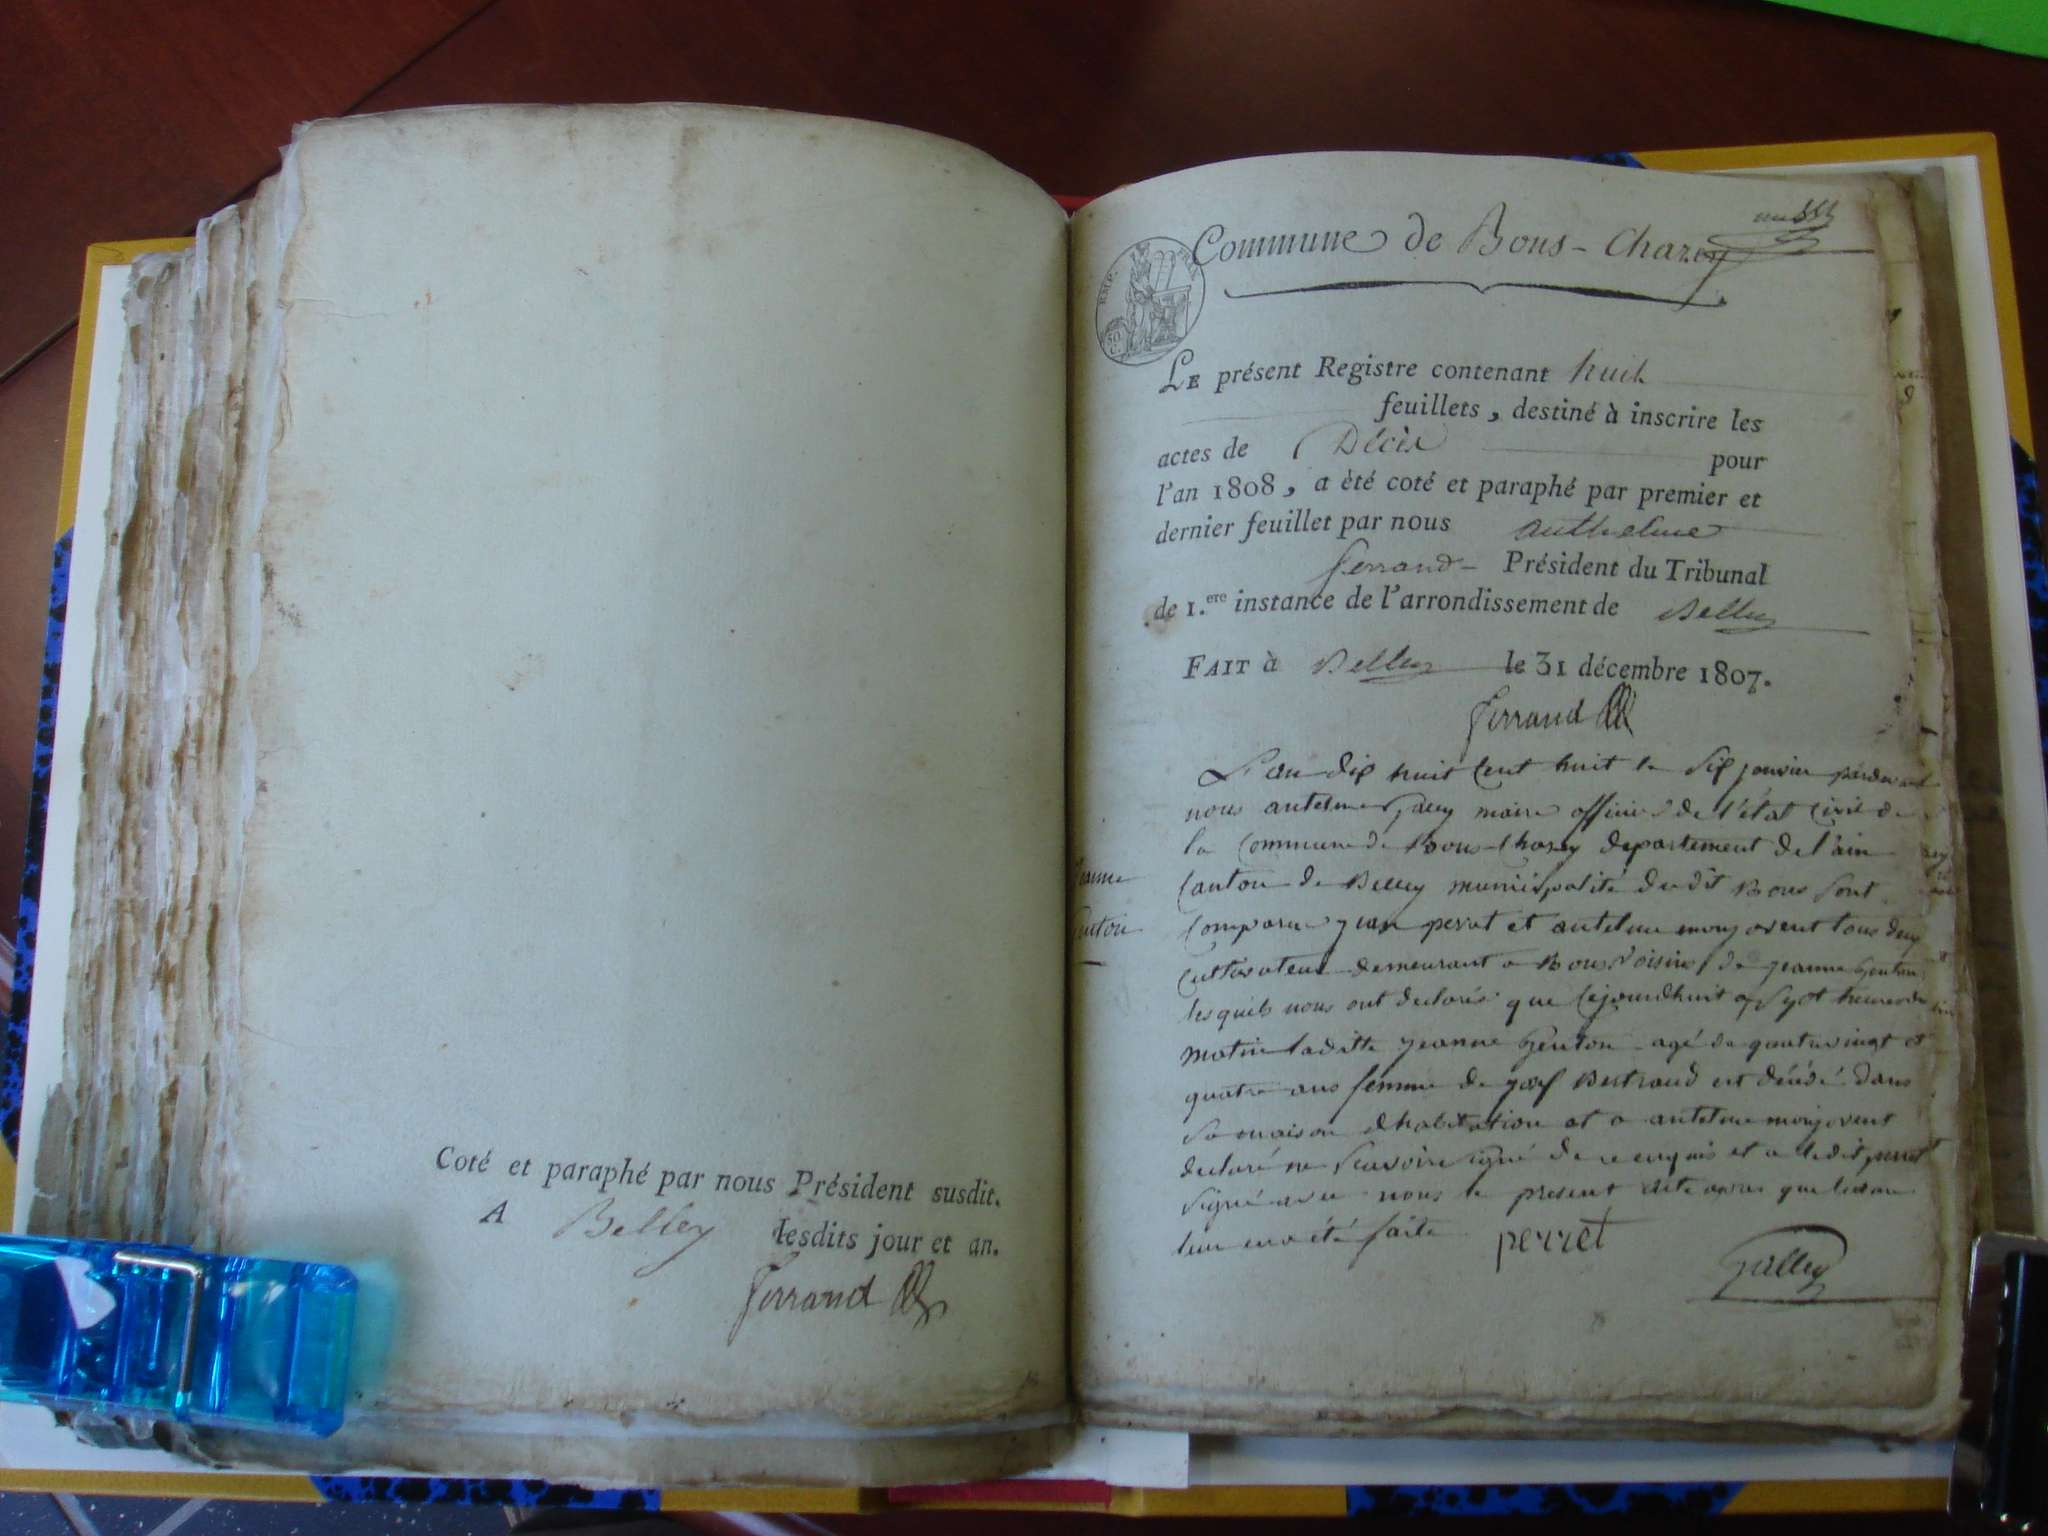 Coté et paraphé par nous Président susdit.
A Belley lesdits jour et an.
Ferrand
Commune de Bons-Chazey
EMP. FRAN.
50 C.
LE présent Registre contenant huit
feuillets, destiné à inscrire les
actes de Décès pour
l'an 1808, a èté coté et paraphé par premier et
dernier feuillet par nous anthelme
ferrand Président du Tribunal
de 1.ere instance de l'arrondissement de Belley
FAIT à Belley le 31 décembre 1807.
Ferrand
Jeanne
Genton
L'an dix huit cent huit le six janvier pardevant
nous antelme gally maire officier de l'état civil de
la commune de Bons-chazey departement de l'ain
canton de Belley municipalité dudit Bons sont
comparu jean perret et antelme monjovent tous deux
cultivateur demeurant a Bons voisins de jeanne genton
lesquels nous ont declarés que cejourdhuit a sept heures du
matin laditte jeanne genton agé de quatrevingt et
quatre ans femme de josef Bertrand est décédé dans
sa maison dhabitation et a antelme monjovent
declaré ne scavoir signé de ce enquis et a ledit perret
signé avec nous le present acte apres que lecture
leur en a été faite perret
gally